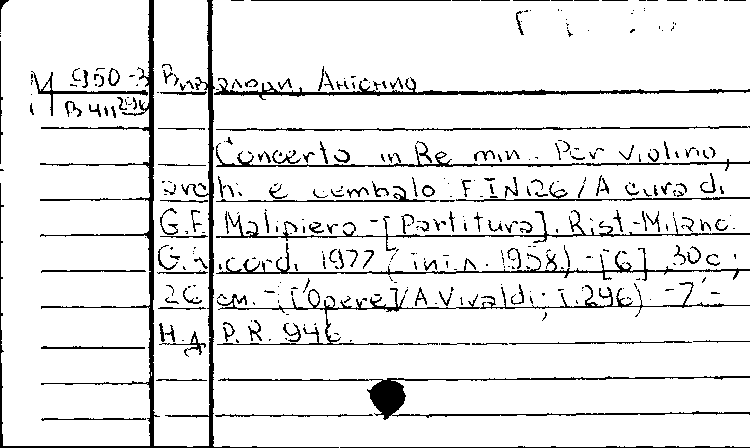 М 950-3 Вивальди, Антонио
В 411 296
Concerto in Re min. Per violino,
archi e cembalo: F.I N126 / A cura di
G.F. Malipiero - [Partitura]. Rist.-Milano:
G. Ricordi, 1977 (imi.n. 1958). - [6], 30 c;
26 см. - ([Opere] / A. Vivaldi; T. 246). - 7.-
Н.д. P.R. 946.